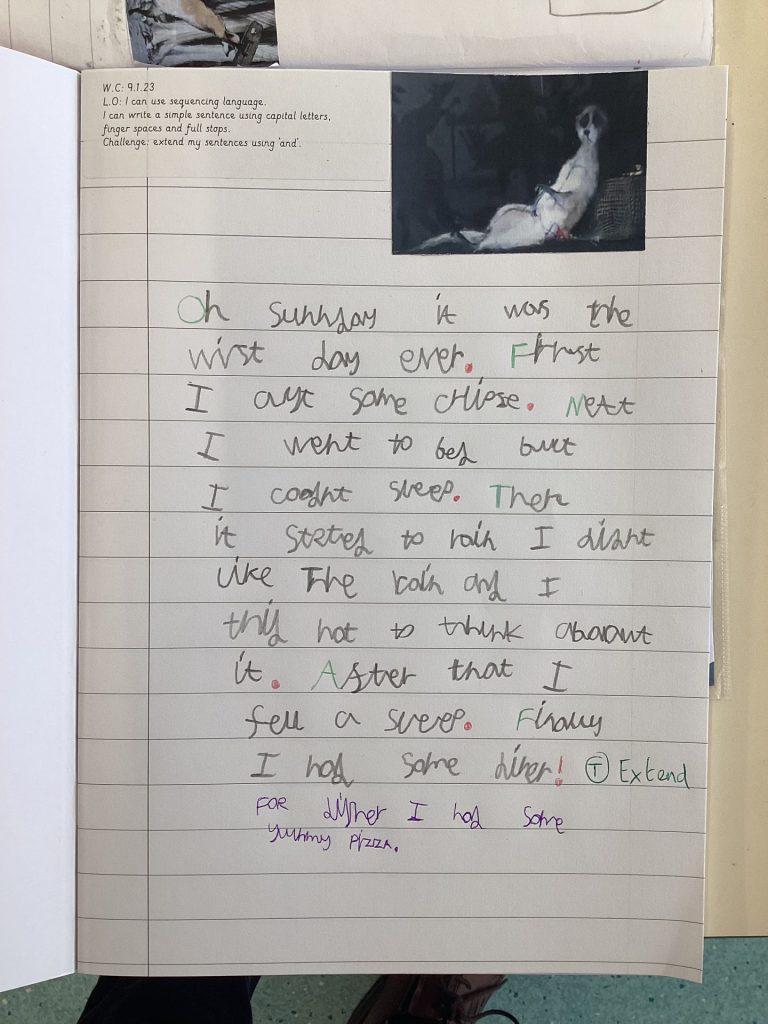 W.C: 9.1.23
L.O: I can use sequencing language.
I can write a simple sentence using capital letters,
finger spaces and full stops.
Challenge: extend my sentences using 'and'.
Oh sunnday it was the
wirst day ever. Firrst
I ayt some chiese. Next
I went to bed but
I coodnt sleep. Then
it stated to rain I didnt
like The rain and I
trid not to think abaout
it. After that I
fell a sleep. Finally
I had some diner! T Extend
FOR disner I had some
yummy pizza.